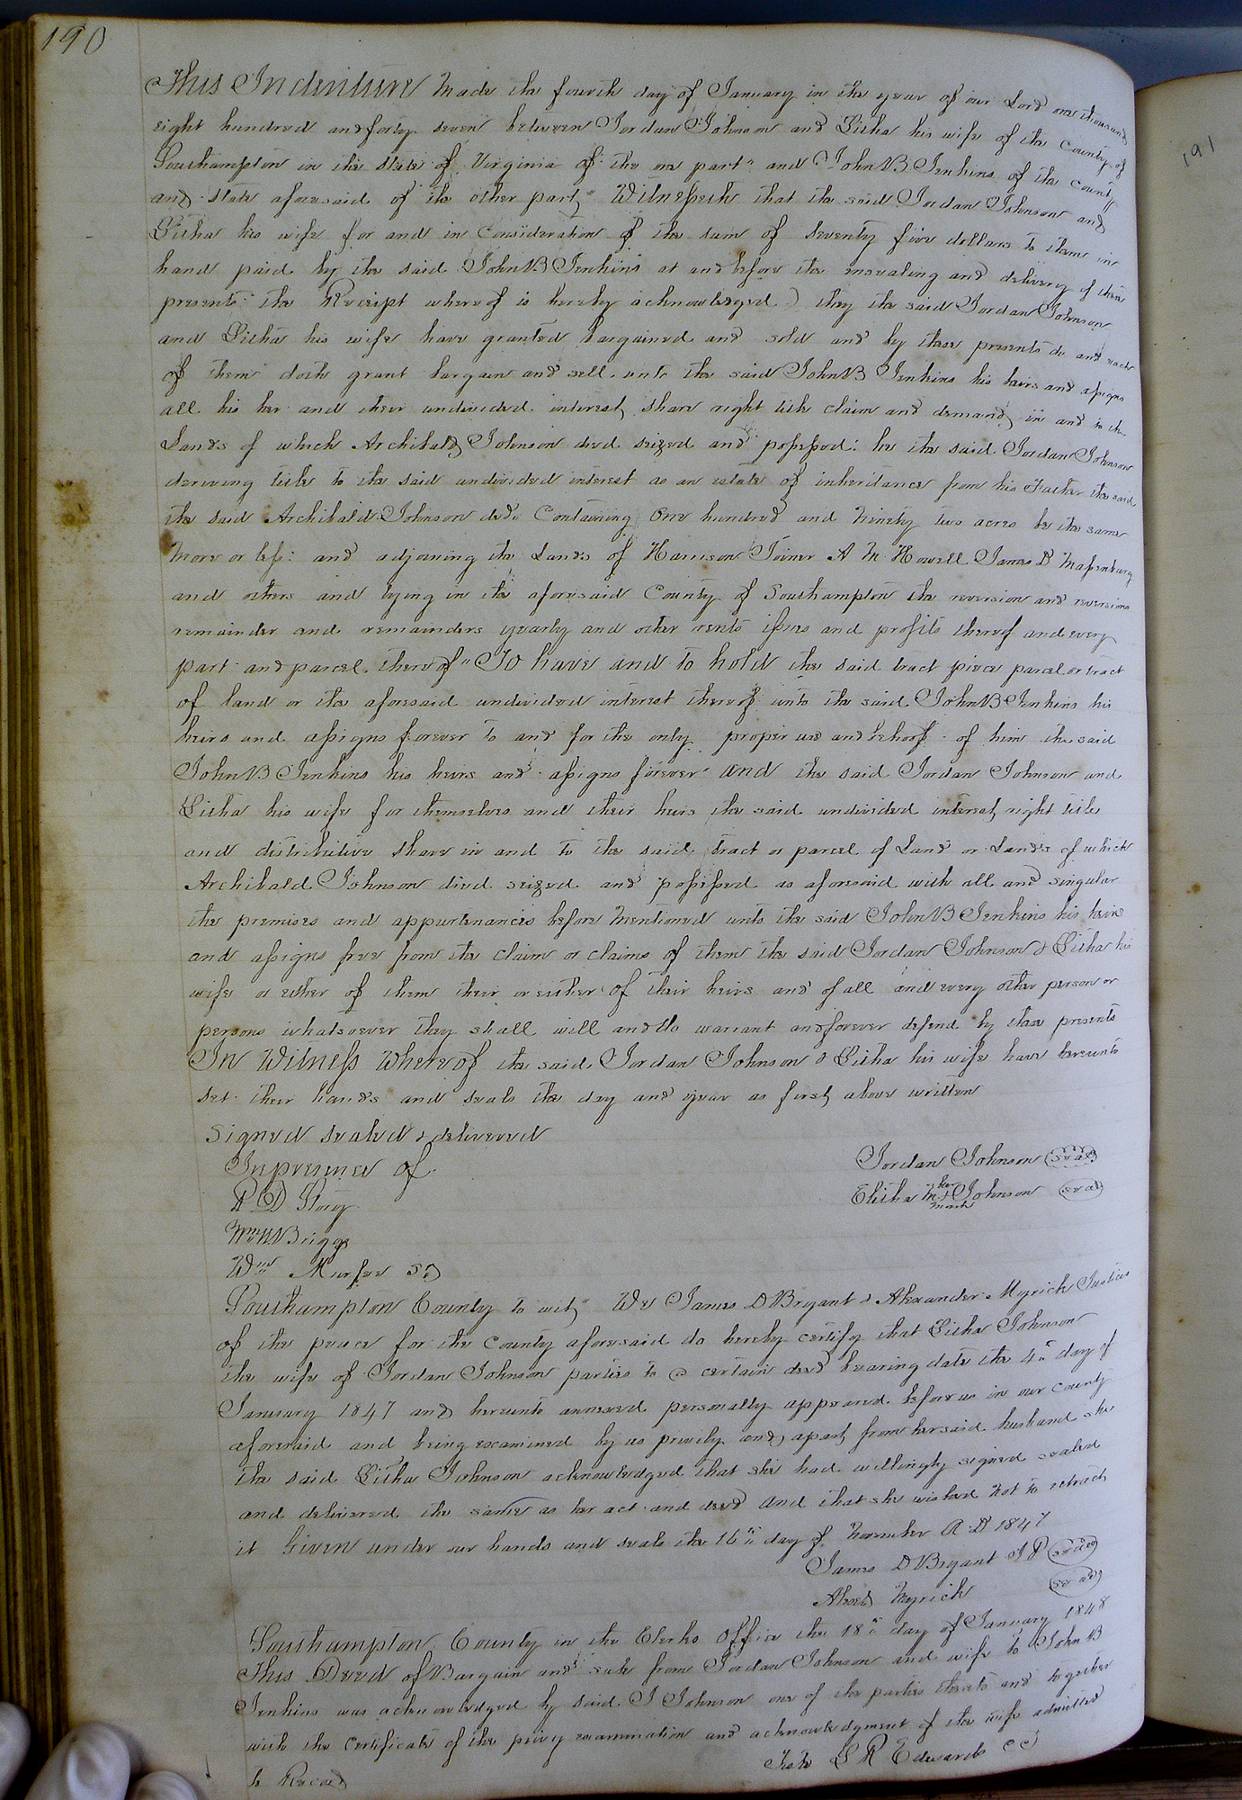 190
This Indenture Made the fourth day of January in the year of our Lord one thousand
eight hundred and forty seven between Jordan Johnson and Litha his wife of the County of
Southampton in the state of Virginia of the one part and John B Jenkins of the County
and state aforesaid of the other part, Witnesseth that the said Jordan Johnson and
Litha his wife for and in Consideration of the sum of seventy five dollars to them in
hand paid by the said John B Jenkins at and before the ensealing and delivery of these
presents the Receipt whereof is hereby acknowledged) they the said Jordan Johnson
and Litha his wife have granted bargained and sold and by these presents do and each
of them doth grant bargain and sell unto the said John B Jenkins his heirs and assigns
all his her and their undivided interest, share right title claim and demand, in and to the
Lands of which Archibald Johnson died seized and possessed: he the said Jordan Johnson
deriving title to the said undivided interest as an estate of inheritance from his Father the said
the said Archibald Johnson decd. Containing One hundred and Ninety two acres be the same
More or less: and adjoining the Lands of Harrison Joiner A M Howell James D Massenburg
and others and lying in the aforesaid County of Southampton the reversion and reversions
remainder and remainders yearly and other rents issues and profits thereof and every
part and parcel thereof" To have and to hold the said tract piece parcel or tract
of land or the aforesaid undivided interest thereof unto the said John B Jenkins his
heirs and assigns forever to and for the only proper use and behoof of him the said
John B Jenkins his heirs and assigns forever" and the said Jordan Johnson and
Litha his wife for themselves and their heirs the said undivided interest, right title
and distributive share in and to the said tract or parcel of Land or Lands of which
Archibald Johnson died seized and possessed as aforesaid with all and singular
the premises and appurtenances before Mentioned unto the said John B Jenkins his heirs
and assigns free from the claim or claims of them the said Jordan Johnson & Litha his
wife or either of them their or either of their heirs and of all and every other person or
persons whatsoever they shall will and do warrant and forever defend by these presents
In Witness Whereof the said Jordan Johnson & Litha his wife have hereunto
set their hands and seals the day and year as first above written
Signed sealed & delivered
In presence of
Jordan Johnson (seal)
R D Story
Elitha her Johnson (seal)
mark
Wm H Briggs
Wm Murfee Sr
Southampton County to wit, We James D Bryant & Alexander Myrick Justices
of the peace for the County aforesaid do hereby certify that Litha Johnson
the wife of Jordan Johnson parties to a certain deed bearing date the 4th day of
January 1847 and hereunto annexed personally appeared before us in our county
aforesaid and being examined by us privily and apart, from her said husband she
the said Litha Johnson acknowledged that she had willingly signed sealed
and delivered the same as her act and deed and that she wished Not to retract
it Given under our hands and seals the 16th day of November A D 1847
James D Bryant J P (seal)
Alexr Myrick (seal)
Southampton County in the Clerks Office the 18th day of January 1848
This Deed of Bargain and sale from Jordan Johnson and wife to John B
Jenkins was acknowledged by said J Johnson one of the parties thereto and together
with the Certificate of the privy examination and acknowledgment of the wife admitted
to Record
Teste L R Edwards C C
191